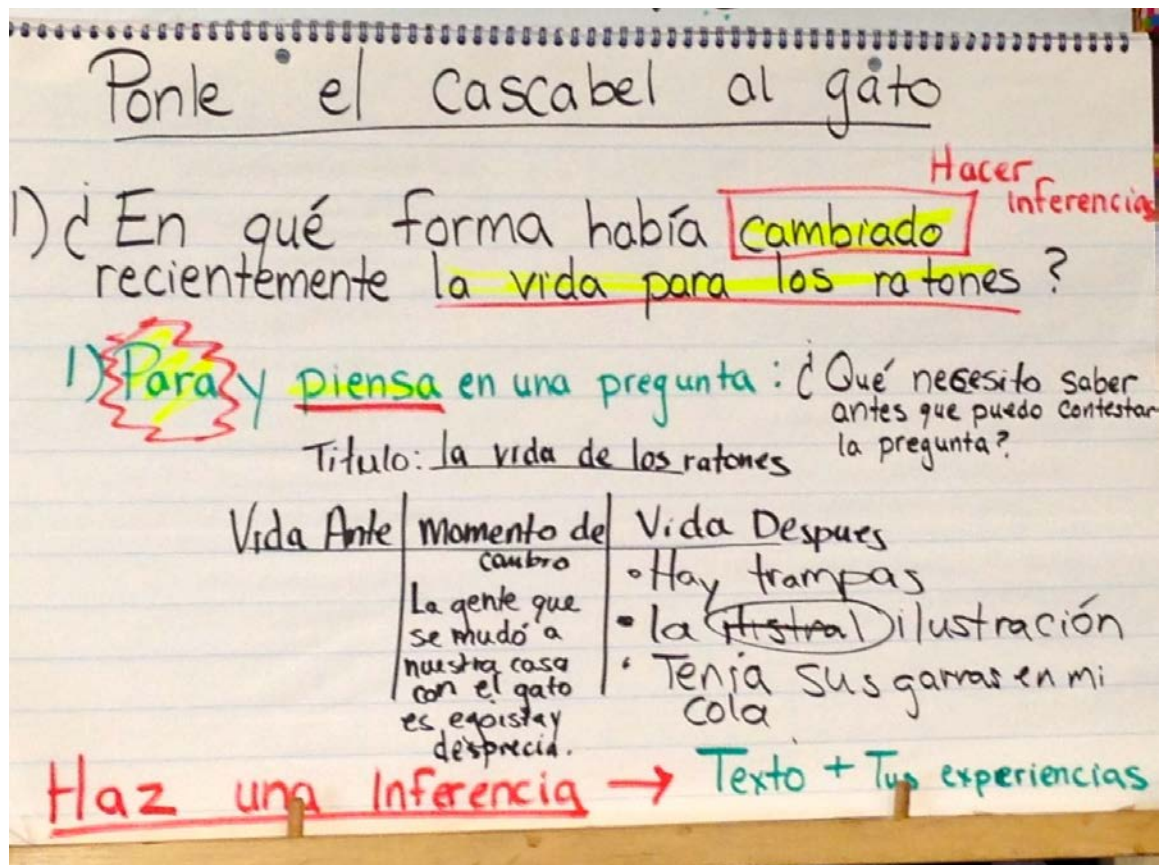 Ponle el cascabel al gato
Hacer
inferencias
1) ¿En qué forma había cambiado
recientemente la vida para los ratones?
1) Para y piensa en una pregunta: ¿Qué necesito saber
antes que puedo contestar
la pregunta?
Titulo: la vida de los ratones
Vida Ante
Momento de
cambio
La gente que
se mudó a
nuestra casa
con el gato
es egoista y
desprecia.
Vida Despues
• Hay trampas
• la ilustración
• Tenía sus garras en mi
cola
Haz una Inferencia → Texto + Tus experiencias